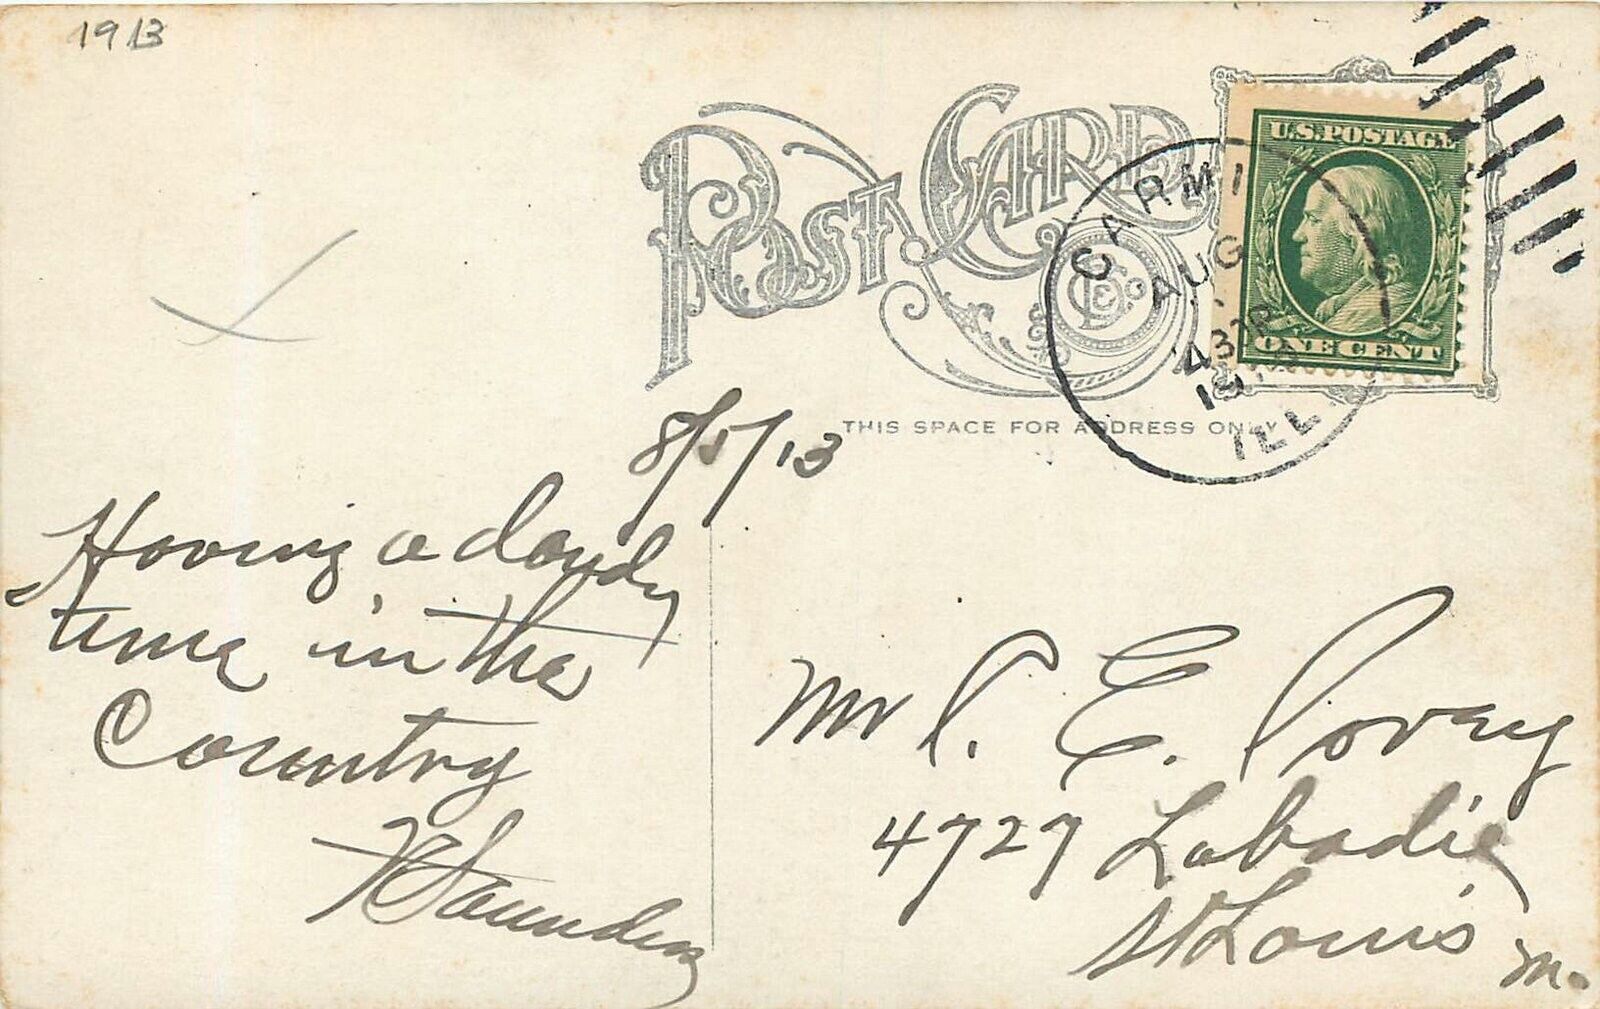 1913
POST CARD
Co.
U.S. POSTAGE
ONE CENT
CARMI
AUG
430P
ILL
THIS SPACE FOR ADDRESS ONLY
8/5/13
Having a dandy
time in the
Country
Saunders
Mr E.
4727 Labadie
St Louis
Mo.